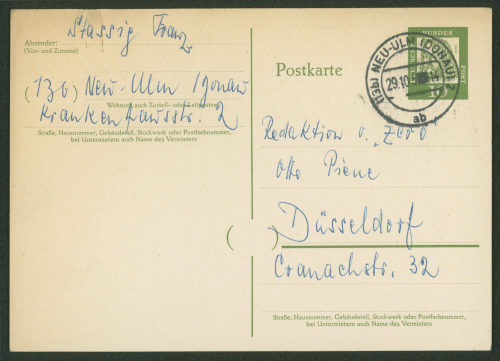 Stassig Franz
Absender:
(Vor- und Zuname)
(13b) Neu-Ulm / Donau
Wohnort, auch Zustell- oder Leitpostamt
Krankenhausstr. 2
Straße, Hausnummer, Gebäudeteil, Stockwerk oder Postfachnummer,
bei Untermietern auch Name des Vermieters
Postkarte
BUNDES
POST
(13b) NEU-ULM (DONAU)
29.10
ab
Redaktion v. „Zero“
Otto Piene
Düsseldorf
( )
Cranachstr. 32
Straße, Hausnummer, Gebäudeteil, Stockwerk oder Postfachnummer,
bei Untermietern auch Name des Vermieters